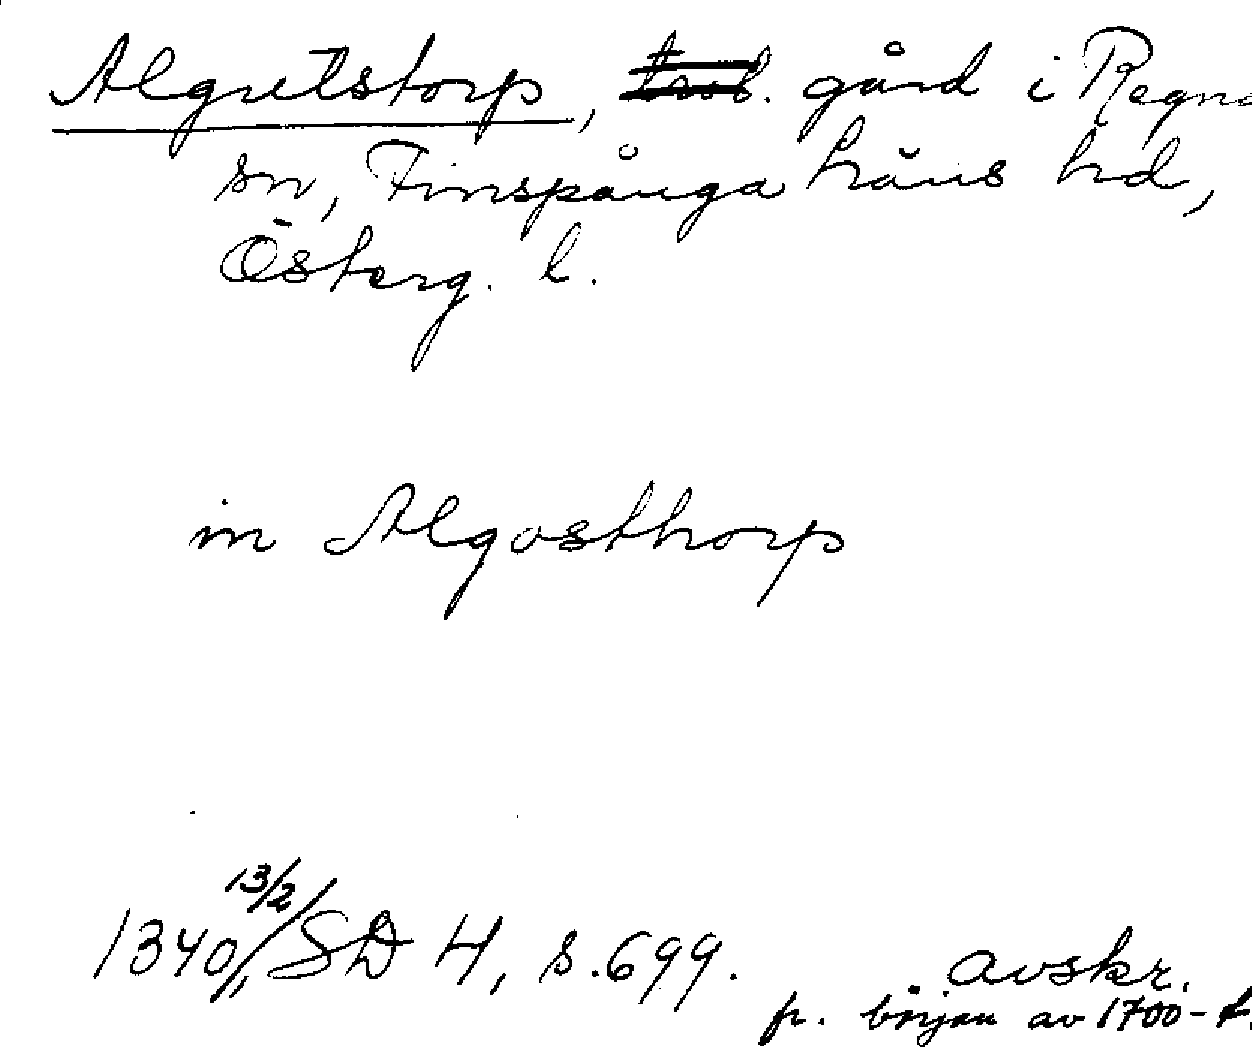 Algutstorp, gård i Regna
sn, Finspånga läns hd,
Österg. l.
in Algosthorp
1340 13/2 SD 4, s. 699. avskr.
fr. början av 1700-t.